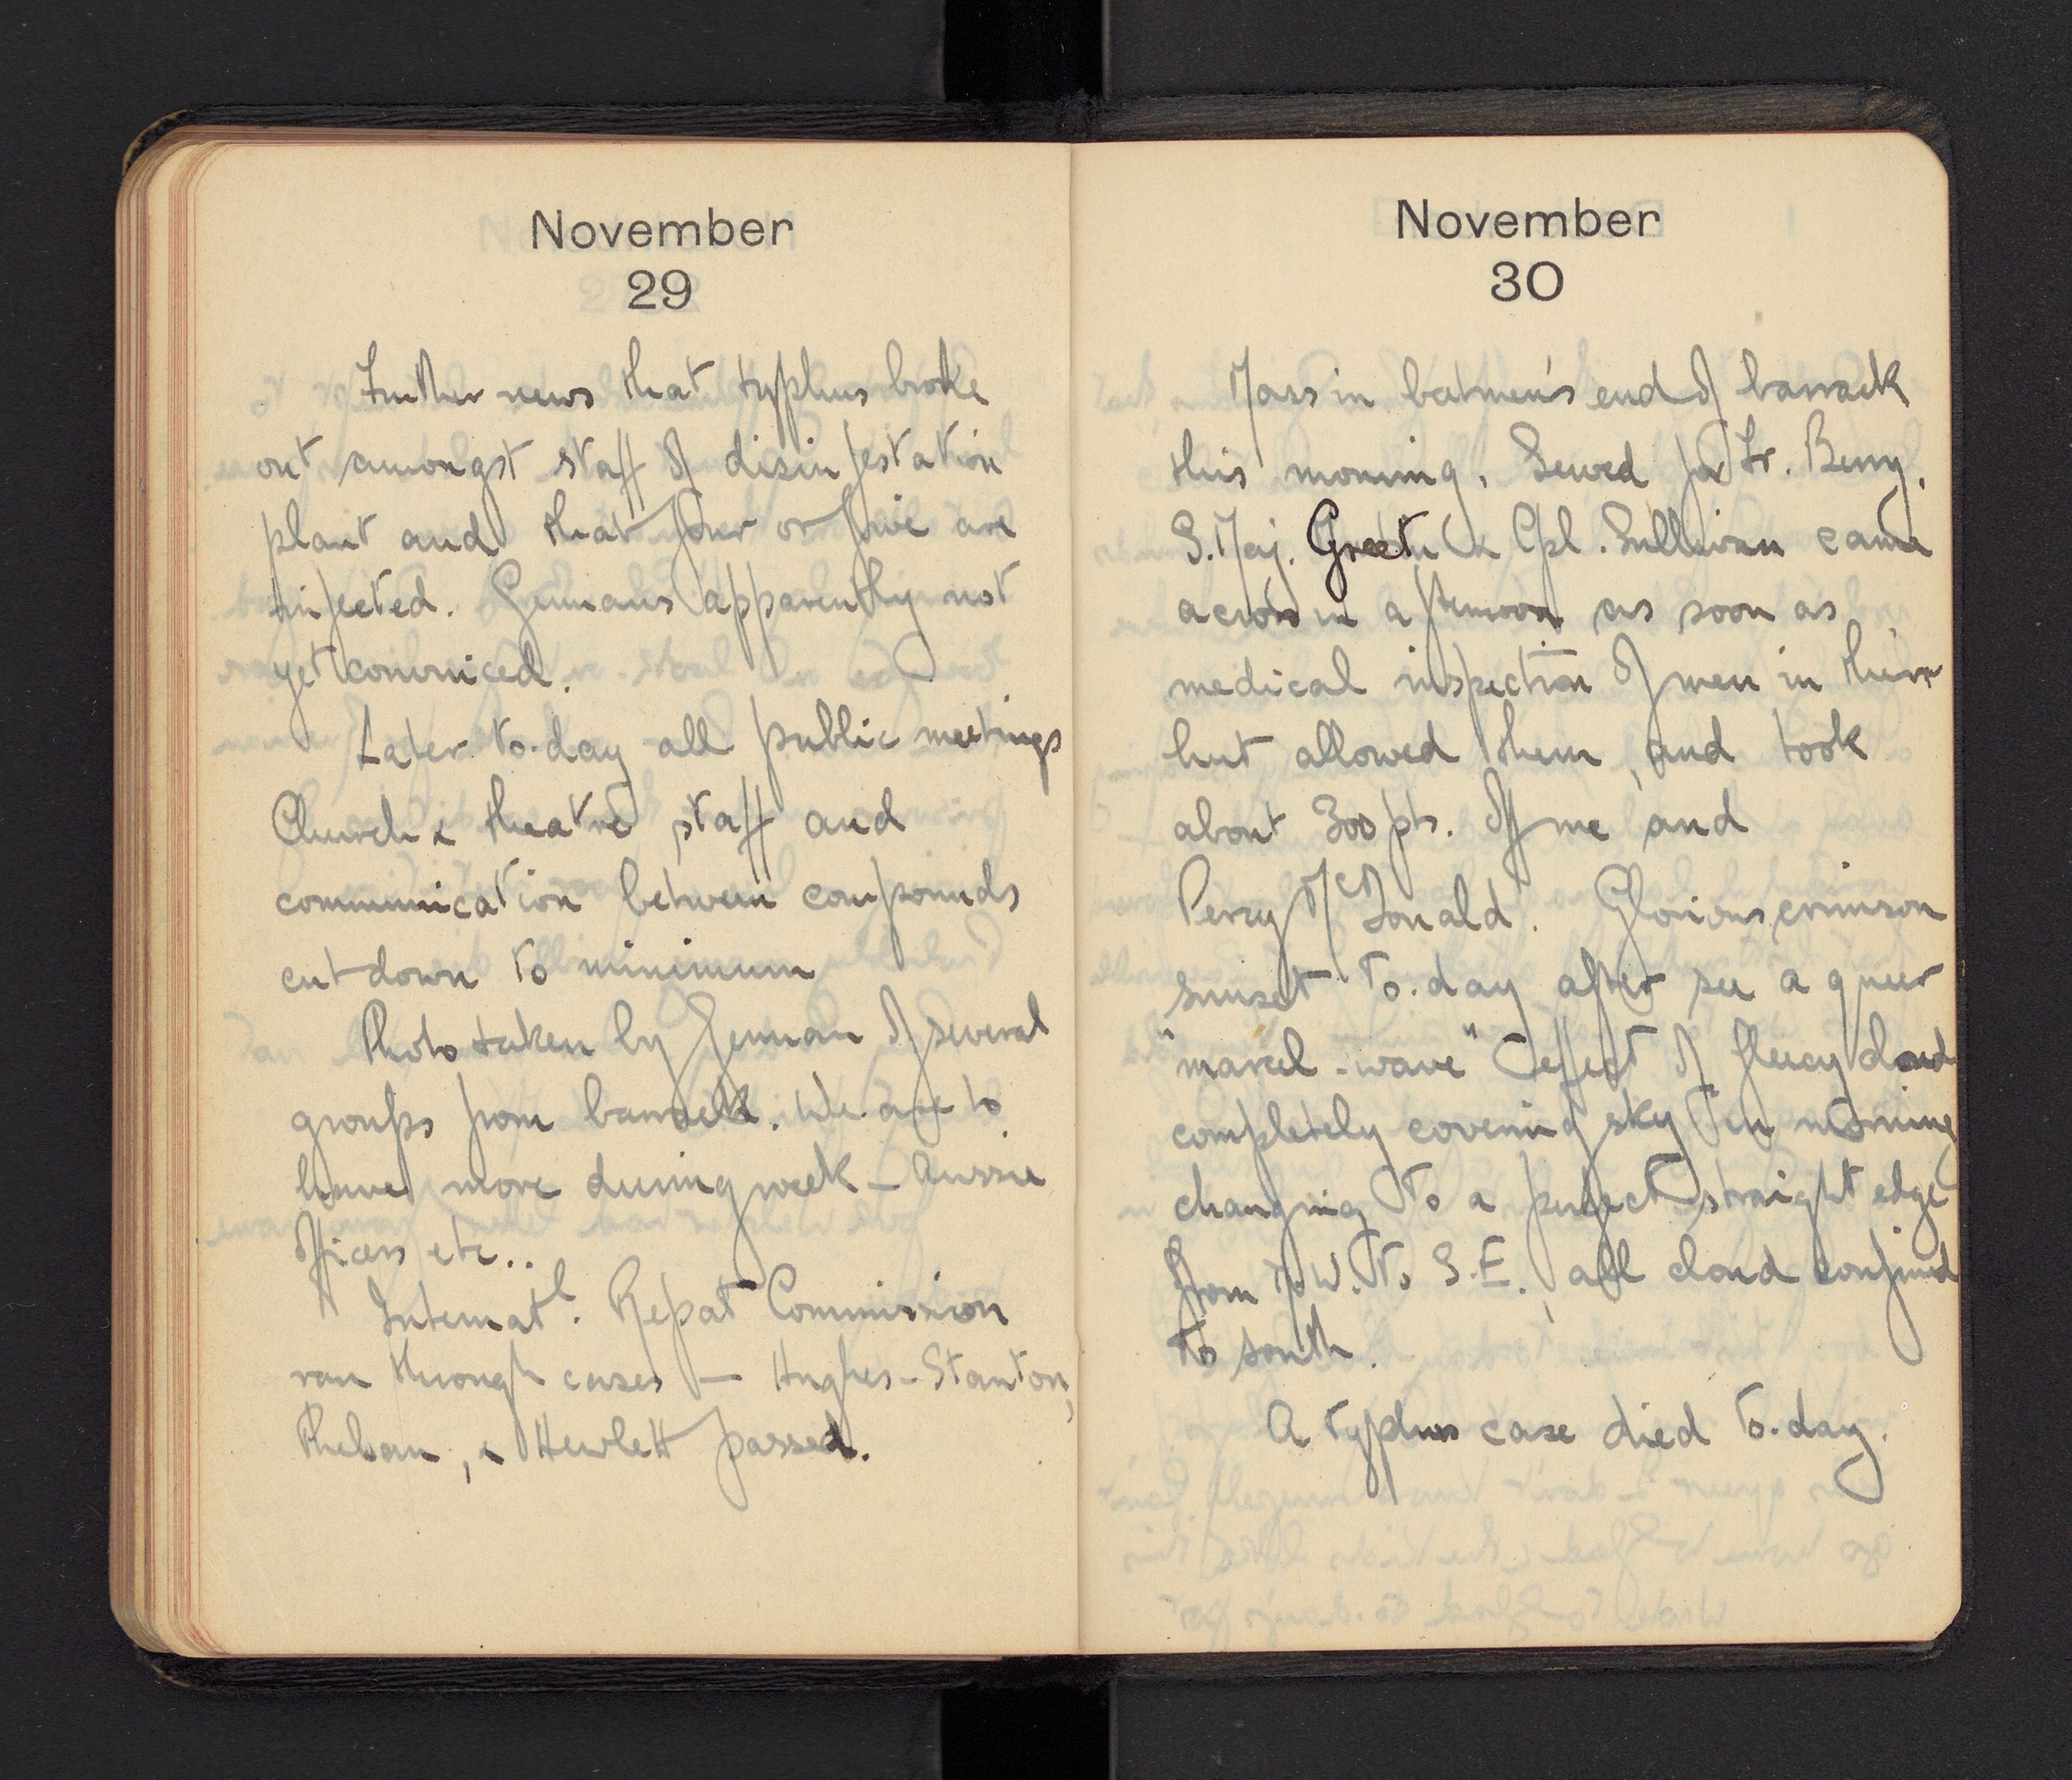 November
29
Further news that typhus broke
out amongst staff of disinfestation
plant and that four or five are
infected. Germans apparently not
yet conviced.
Later to-day all public meetings
Church & theatre, staff and
communication between compounds
cut down to minimum
Photo taken by German of several
groups from barrack. We are to
have more during week – Aussie
officers etc..
Internatl. Repat Commission
ran through cases – Hughes-Stanton,
, & Hewlett passed.
November
30
Mass in batmen's end of barrack
this morning. Served for Fr. Berry.
S. Maj. & Cpl. Sullivan came
across in afternoon as soon as
medical inspection of men in their
hut allowed them, and took
about 300 pts. off me and
Percy McDonald. Glorious crimson
sunset to-day after a queer
"marcel-wave" effect of fleecy cloud
completely covering sky in morning
changing to a perfect straight edge
from N.W. to S.E., all cloud confined
to south.
A typhus case died to-day.